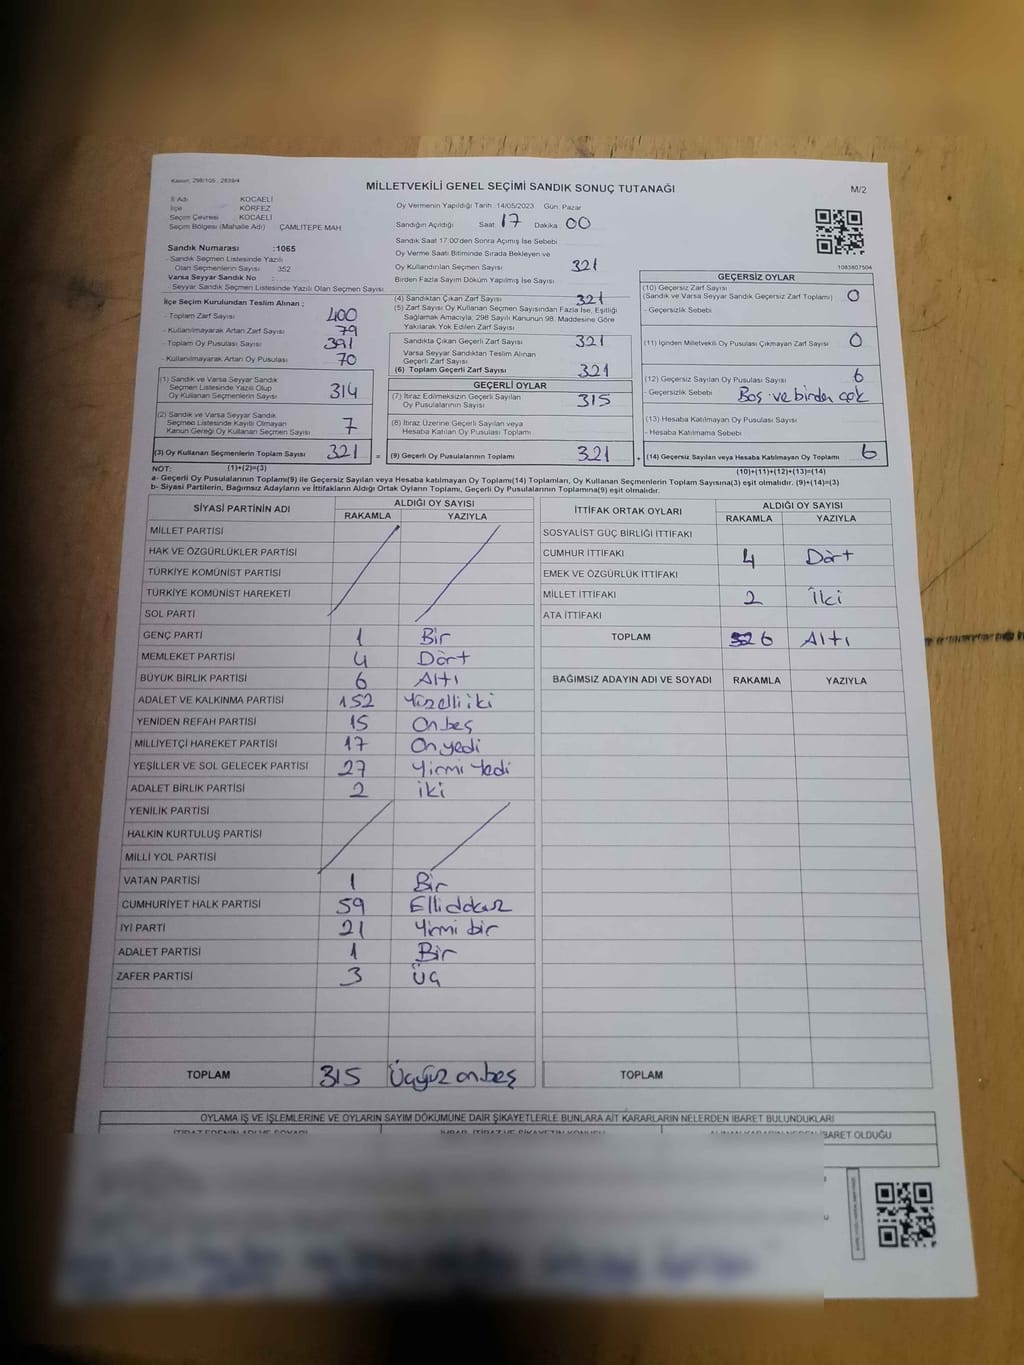 Kanun: 298/105 , 2839/4
MİLLETVEKİLİ GENEL SEÇİMİ SANDIK SONUÇ TUTANAĞI
M/2
İl Adı : KOCAELİ
İlçe : KÖRFEZ
Seçim Çevresi : KOCAELİ
Seçim Bölgesi (Mahalle Adı) : ÇAMLITEPE MAH
Sandık Numarası :1065
- Sandık Seçmen Listesinde Yazılı
Olan Seçmenlerin Sayısı : 352
Varsa Seyyar Sandık No :
Seyyar Sandık Seçmen Listesinde Yazılı Olan Seçmen Sayısı :
Oy Vermenin Yapıldığı Tarih :14/05/2023 Gün: Pazar
Sandığın Açıldığı Saat: 17 Dakika: 00
Sandık Saat 17:00'den Sonra Açılmış İse Sebebi
Oy Verme Saati Bitiminde Sırada Bekleyen ve
Oy Kullandırılan Seçmen Sayısı 321
Birden Fazla Sayım Döküm Yapılmış İse Sayısı :
1083807504
İlçe Seçim Kurulundan Teslim Alınan ;
- Toplam Zarf Sayısı 400
- Kullanılmayarak Artan Zarf Sayısı 79
- Toplam Oy Pusulası Sayısı 391
- Kullanılmayarak Artan Oy Pusulası 70
(1) Sandık ve Varsa Seyyar Sandık
Seçmen Listesinde Yazılı Olup
Oy Kullanan Seçmenlerin Sayısı 314
(2) Sandık ve Varsa Seyyar Sandık
Seçmen Listesinde Kayıtlı Olmayan
Kanun Gereği Oy Kullanan Seçmen Sayısı 7
(3) Oy Kullanan Seçmenlerin Toplam Sayısı 321 =
(4) Sandıktan Çıkan Zarf Sayısı 321
(5) Zarf Sayısı Oy Kullanan Seçmen Sayısından Fazla İse, Eşitliği
Sağlamak Amacıyla, 298 Sayılı Kanunun 98. Maddesine Göre
Yakılarak Yok Edilen Zarf Sayısı
Sandıkta Çıkan Geçerli Zarf Sayısı 321
Varsa Seyyar Sandıktan Teslim Alınan
Geçerli Zarf Sayısı
(6) Toplam Geçerli Zarf Sayısı 321
GEÇERLİ OYLAR
(7) İtiraz Edilmeksizin Geçerli Sayılan
Oy Pusulalarının Sayısı 315
(8) İtiraz Üzerine Geçerli Sayılan veya
Hesaba Katılan Oy Pusulası Toplamı
(9) Geçerli Oy Pusulalarının Toplamı 321 +
GEÇERSİZ OYLAR
(10) Geçersiz Zarf Sayısı
(Sandık ve Varsa Seyyar Sandık Geçersiz Zarf Toplamı) 0
- Geçersizlik Sebebi
(11) İçinden Milletvekili Oy Pusulası Çıkmayan Zarf Sayısı 0
(12) Geçersiz Sayılan Oy Pusulası Sayısı 6
- Geçersizlik Sebebi Boş ve birden çok
(13) Hesaba Katılmayan Oy Pusulası Sayısı
- Hesaba Katılmama Sebebi
(14) Geçersiz Sayılan veya Hesaba Katılmayan Oy Toplamı 6
NOT: (1)+(2)=(3) (10)+(11)+(12)+(13)=(14)
a- Geçerli Oy Pusulalarının Toplamı(9) ile Geçersiz Sayılan veya Hesaba katılmayan Oy Toplamı(14) Toplamları, Oy Kullanan Seçmenlerin Toplam Sayısına(3) eşit olmalıdır. (9)+(14)=(3)
b- Siyasi Partilerin, Bağımsız Adayların ve İttifakların Aldığı Ortak Oyların Toplamı, Geçerli Oy Pusulalarının Toplamına(9) eşit olmalıdır.
SİYASİ PARTİNİN ADI ALDIĞI OY SAYISI
RAKAMLA YAZIYLA
MİLLET PARTİSİ
HAK VE ÖZGÜRLÜKLER PARTİSİ
TÜRKİYE KOMÜNİST PARTİSİ
TÜRKİYE KOMÜNİST HAREKETİ
SOL PARTİ
GENÇ PARTİ 1 Bir
MEMLEKET PARTİSİ 4 Dört
BÜYÜK BİRLİK PARTİSİ 6 Altı
ADALET VE KALKINMA PARTİSİ 152 Yüzelli iki
YENİDEN REFAH PARTİSİ 15 Onbeş
MİLLİYETÇİ HAREKET PARTİSİ 17 Onyedi
YEŞİLLER VE SOL GELECEK PARTİSİ 27 Yirmi Yedi
ADALET BİRLİK PARTİSİ 2 iki
YENİLİK PARTİSİ
HALKIN KURTULUŞ PARTİSİ
MİLLİ YOL PARTİSİ
VATAN PARTİSİ 1 Bir
CUMHURİYET HALK PARTİSİ 59 Ellidokuz
İYİ PARTİ 21 Yirmi bir
ADALET PARTİSİ 1 Bir
ZAFER PARTİSİ 3 Üç
TOPLAM 315 Üçyüz onbeş
İTTİFAK ORTAK OYLARI ALDIĞI OY SAYISI
RAKAMLA YAZIYLA
SOSYALİST GÜÇ BİRLİĞİ İTTİFAKI
CUMHUR İTTİFAKI 4 Dört
EMEK VE ÖZGÜRLÜK İTTİFAKI
MİLLET İTTİFAKI 2 İki
ATA İTTİFAKI
TOPLAM 6 Altı
BAĞIMSIZ ADAYIN ADI VE SOYADI RAKAMLA YAZIYLA
TOPLAM
OYLAMA İŞ VE İŞLEMLERİNE VE OYLARIN SAYIM DÖKÜMÜNE DAİR ŞİKAYETLERLE BUNLARA AİT KARARLARIN NELERDEN İBARET BULUNDUKLARI
İBARET OLDUĞU